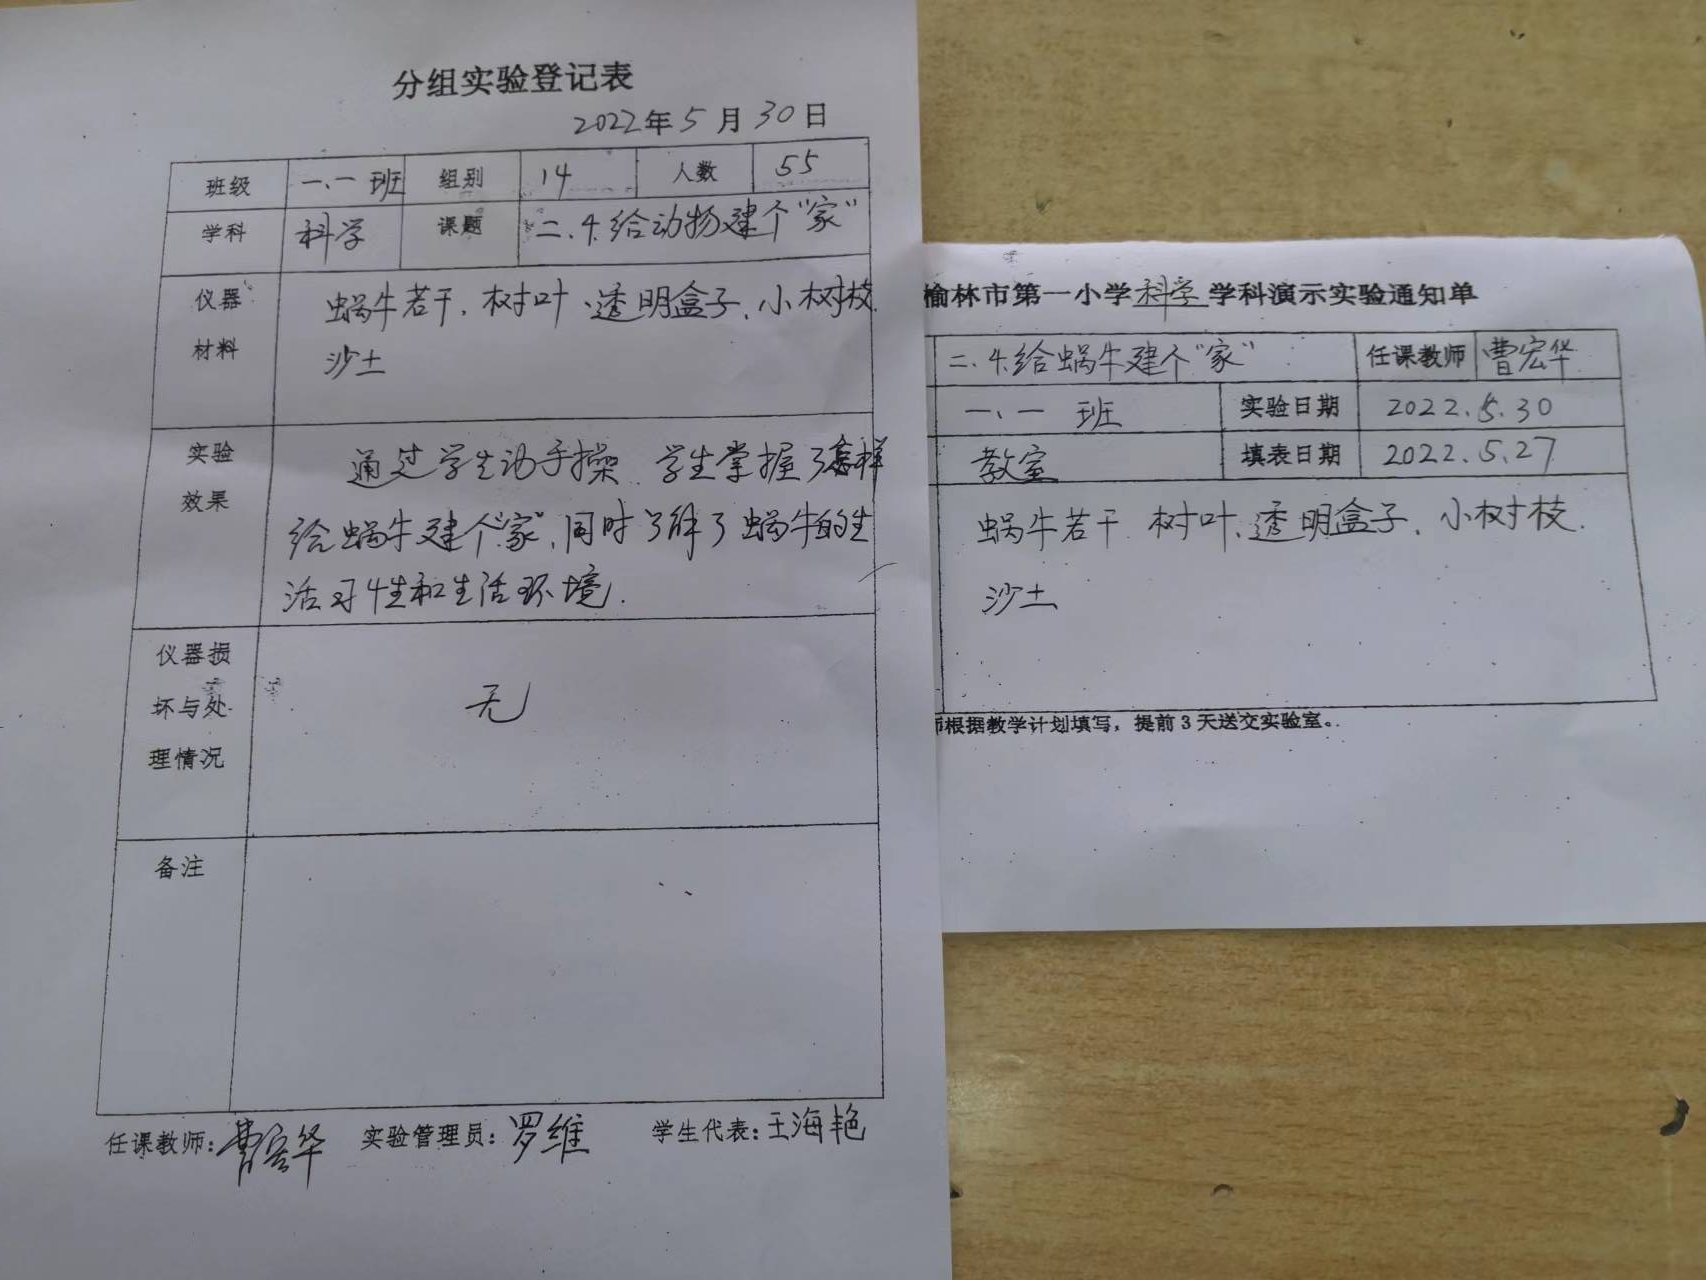 分组实验登记表
2022年5月30日
班级 一、一 班 组别 14 人数 55
学科 科学 课题 二、4.给动物建个“家”
仪器材料
蜗牛若干、树叶、透明盒子、小树枝
沙土
实验效果
通过学生动手操 学生掌握了怎样
给蜗牛建个“家”,同时了解了蜗牛的生
活习性和生活环境.
仪器损坏与处理情况
无
备注
任课教师:曹宏华 实验管理员:罗维 学生代表:王海艳
榆林市第一小学科学学科演示实验通知单
二、4.给蜗牛建个“家” 任课教师 曹宏华
一、一 班 实验日期 2022.5.30
教室 填表日期 2022.5.27
蜗牛若干 树叶、透明盒子、小树枝.
沙土
师根据教学计划填写，提前3天送交实验室。